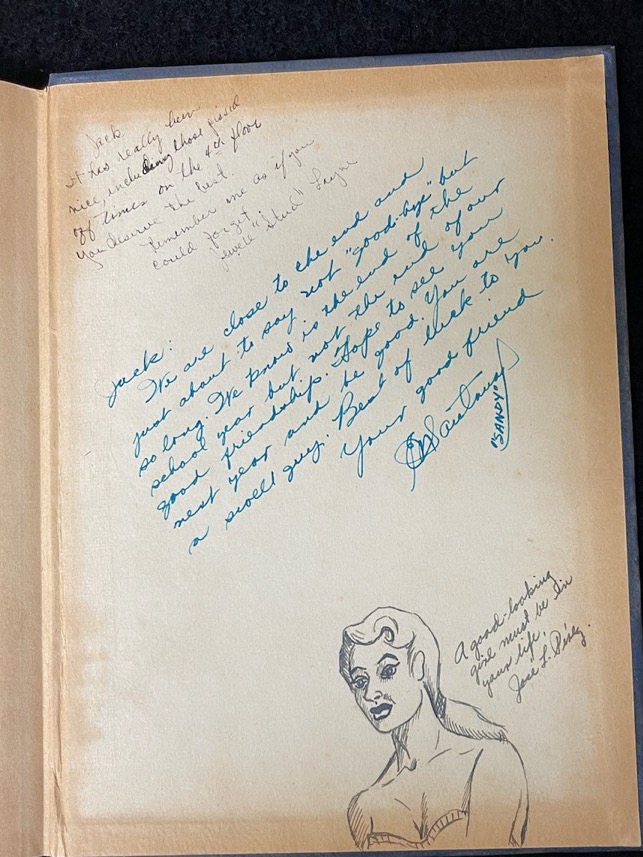 Jack,
It has really been
nice, including those pissed
off times on the 4th floor
You deserve the best.
Remember me as if you
could forget.
"Stud" Layne
Jack:
We are close to the end and
just about to say not "good-bye" but
so long. We know is the end of the
school year but not the end of our
good friendship. Hope to see you
next year and be good. You are
a swell guy. Best of luck to you.
Your good friend
"SANDY"
A good-looking
girl must be in
your life.
José L. Pérez.